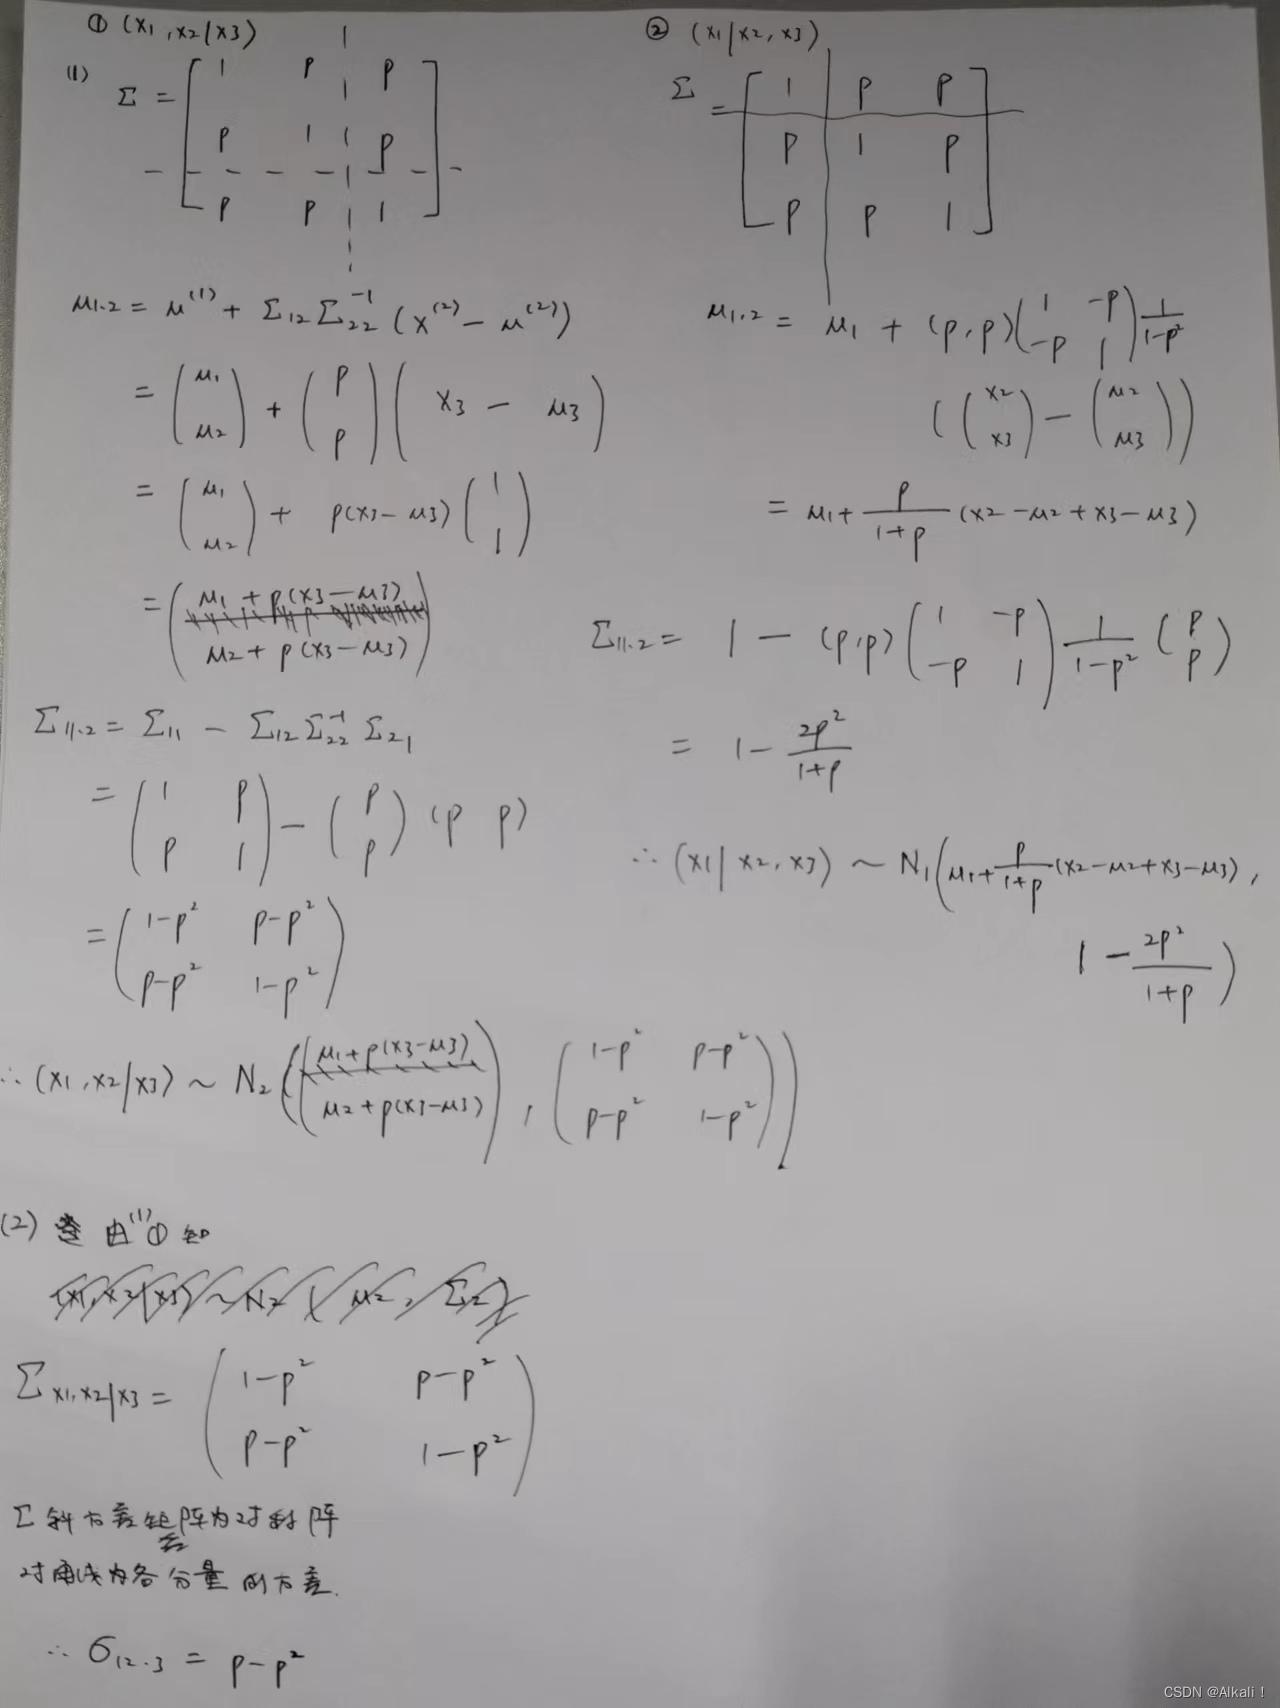 ① (x1, x2|x3)
(1) Σ = [ 1 ρ ρ
ρ 1 ρ
ρ ρ 1 ]
μ1·2 = μ⁽¹⁾ + Σ12 Σ22⁻¹ (x⁽²⁾ − μ⁽²⁾)
= (μ1
μ2) + (ρ
ρ) (x3 − μ3)
= (μ1
μ2) + ρ(x3 − μ3) (1
1)
= (μ1 + ρ(x3 − μ3)
μ2 + ρ(x3 − μ3))
Σ11·2 = Σ11 − Σ12 Σ22⁻¹ Σ21
= (1 ρ
ρ 1) − (ρ
ρ) (ρ ρ)
= (1−ρ² ρ−ρ²
ρ−ρ² 1−ρ²)
∴ (x1, x2|x3) ~ N2((μ1+ρ(x3−μ3)
μ2+ρ(x3−μ3)), (1−ρ² ρ−ρ²
ρ−ρ² 1−ρ²))
② (x1|x2, x3)
Σ = [ 1 ρ ρ
ρ 1 ρ
ρ ρ 1 ]
μ1·2 = μ1 + (ρ, ρ)(1 −ρ
−ρ 1) 1/(1−ρ²)
((x2
x3) − (μ2
μ3))
= μ1 + ρ/(1+ρ) (x2 − μ2 + x3 − μ3)
Σ11·2 = 1 − (ρ, ρ)(1 −ρ
−ρ 1) 1/(1−ρ²) (ρ
ρ)
= 1 − 2ρ²/(1+ρ)
∴ (x1|x2, x3) ~ N1(μ1 + ρ/(1+ρ) (x2−μ2+x3−μ3),
1 − 2ρ²/(1+ρ))
(2) 由(1)①知
(x1, x2|x3) ~ N2 ( μ2, Σ12)
Σx1,x2|x3 = (1−ρ² ρ−ρ²
ρ−ρ² 1−ρ²)
Σ 斜方差矩阵为对称阵
对角线为各分量的方差.
∴ σ12·3 = ρ−ρ²
CSDN @Alkali！